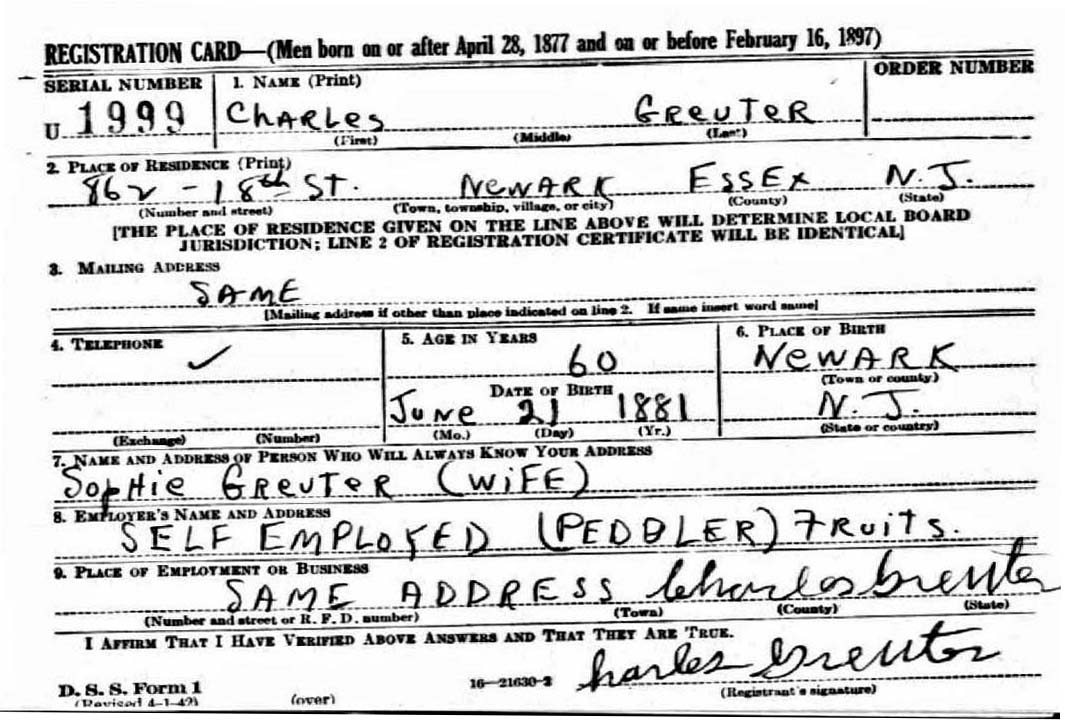 REGISTRATION CARD—(Men born on or after April 28, 1877 and on or before February 16, 1897)
SERIAL NUMBER 1. NAME (Print) ORDER NUMBER
U 1999 CHARLES GREUTER
(First) (Middle) (Last)
2. PLACE OF RESIDENCE (Print)
862 - 18th ST. NEWARK ESSEX N.J.
(Number and street) (Town, township, village, or city) (County) (State)
[THE PLACE OF RESIDENCE GIVEN ON THE LINE ABOVE WILL DETERMINE LOCAL BOARD
JURISDICTION; LINE 2 OF REGISTRATION CERTIFICATE WILL BE IDENTICAL]
3. MAILING ADDRESS
SAME
[Mailing address if other than place indicated on line 2. If same insert word same]
4. TELEPHONE 5. AGE IN YEARS 6. PLACE OF BIRTH
✓ 60 NEWARK
(Town or county)
DATE OF BIRTH
June 21 1881 N.J.
(Exchange) (Number) (Mo.) (Day) (Yr.) (State or country)
7. NAME AND ADDRESS OF PERSON WHO WILL ALWAYS KNOW YOUR ADDRESS
SOPHIE GREUTER (WIFE)
8. EMPLOYER'S NAME AND ADDRESS
SELF EMPLOYED (PEDDLER) FRUITS.
9. PLACE OF EMPLOYMENT OR BUSINESS
SAME ADDRESS Charles Greuter
(Number and street or R. F. D. number) (Town) (County) (State)
I AFFIRM THAT I HAVE VERIFIED ABOVE ANSWERS AND THAT THEY ARE TRUE.
Charles Greuter
D. S. S. Form 1 16—21630-2 (Registrant's signature)
(Revised 4-1-42) (over)